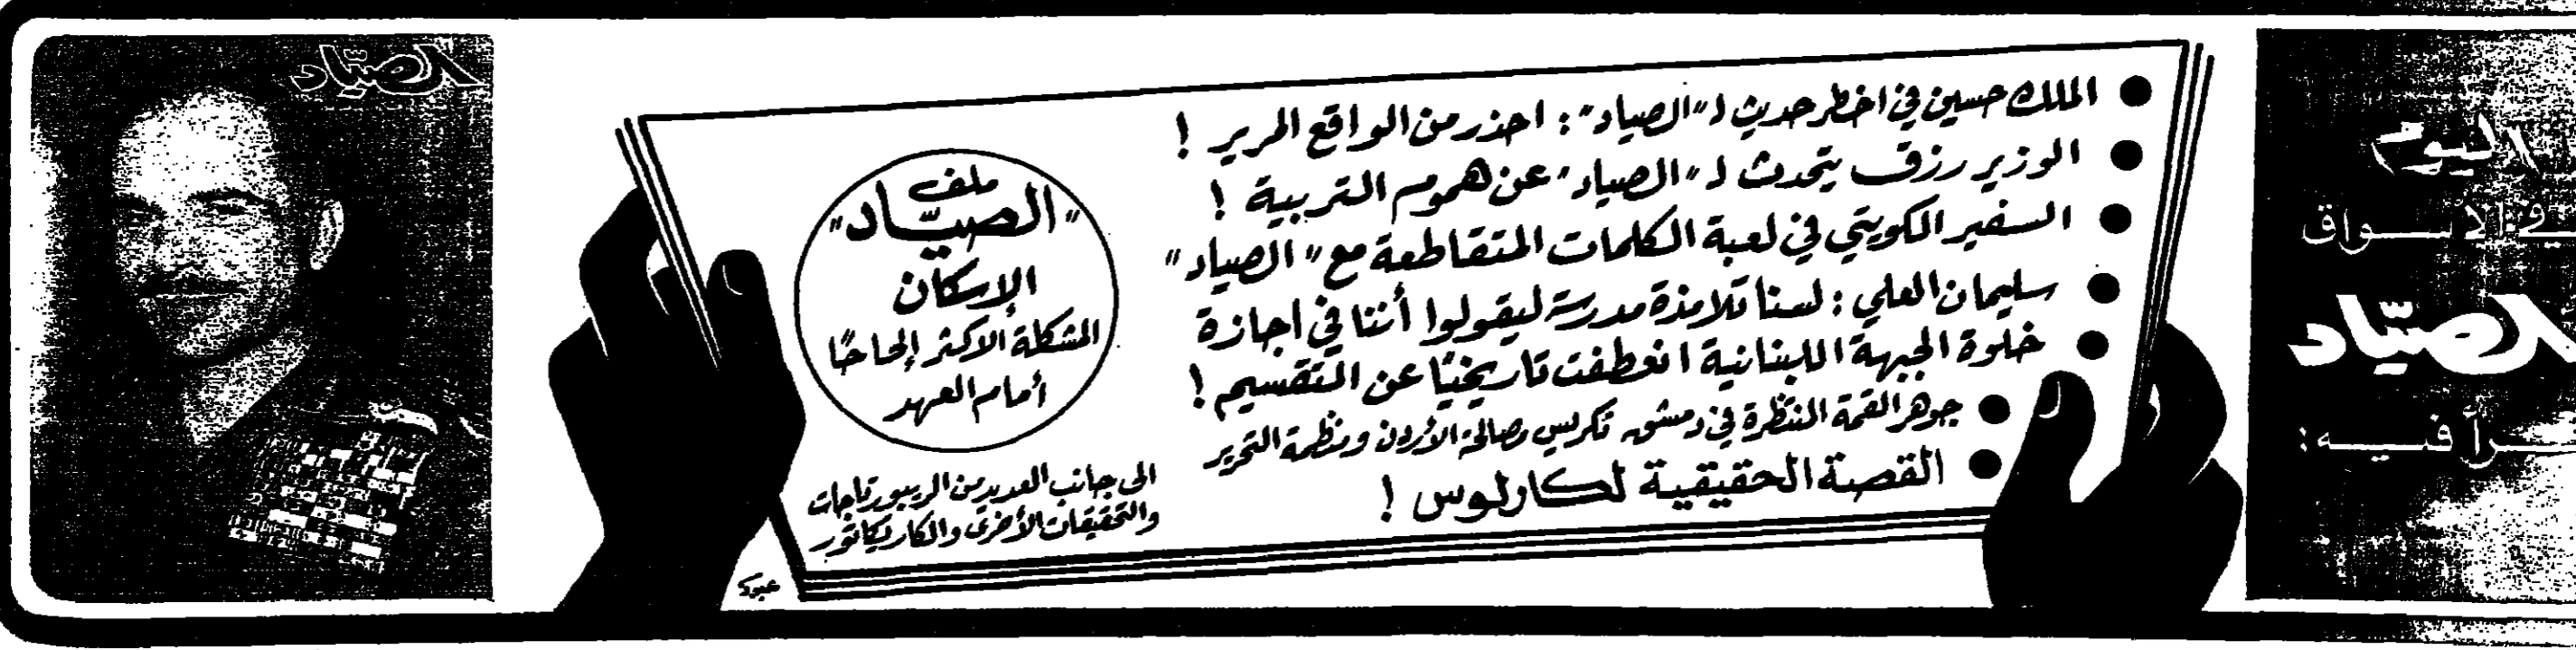 اليوم
في الأسواق
الصيّاد
فيه:
● الملك حسين في اخطر حديث لـ "الصياد": احذر من الواقع المرير !
● الوزير رزق يتحدث لـ "الصياد" عن هموم التربية !
● السفير الكويتي في لعبة الكلمات المتقاطعة مع "الصياد"
● سليمان العلي: لسنا تلامذة مدرسة ليقولوا أننا في اجازة
● خلوة الجبهة اللبنانية انعطفت تاريخيًا عن التقسيم !
● جوهر القمة المنتظرة في دمشق تكريس مصالحة الأردن ومنظمة التحرير
● القصة الحقيقية لكارلوس !
ملف
"الصيّاد"
الإسكان
المشكلة الاكثر إلحاحًا
أمام العهد
الى جانب العديد من الريبورتاجات
والتحقيقات الأخرى والكاريكاتور
عبود
الصيّاد